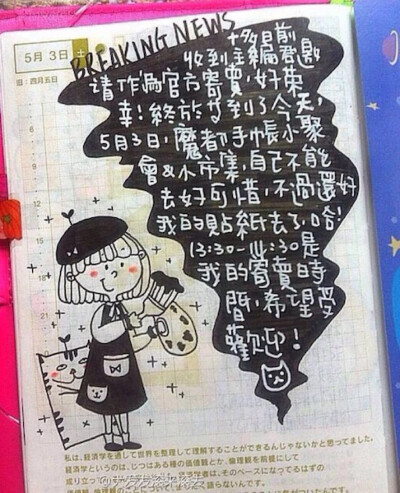 5月3日 土
旧：四月五日
BREAKING NEWS
前
收到主編群邀
請作為官方寄賣,好榮
幸!終於等到了今天,
5月3日,魔都手帳小聚
會&小市集,自己不能
去好可惜,不過還好
我的貼紙去了,哈!
13:30- :30是
我的寄賣時
間,希望受
歡迎!
私は、経済学を通して世界を整理して理解することができるんじゃないかと思ってました。
経済学というのは、じつはある種の価値観とか、倫理観を前提にして
成り立って 経済学者は、そのベースになってるはずの
価値観、倫理観の まったく語らないんです。